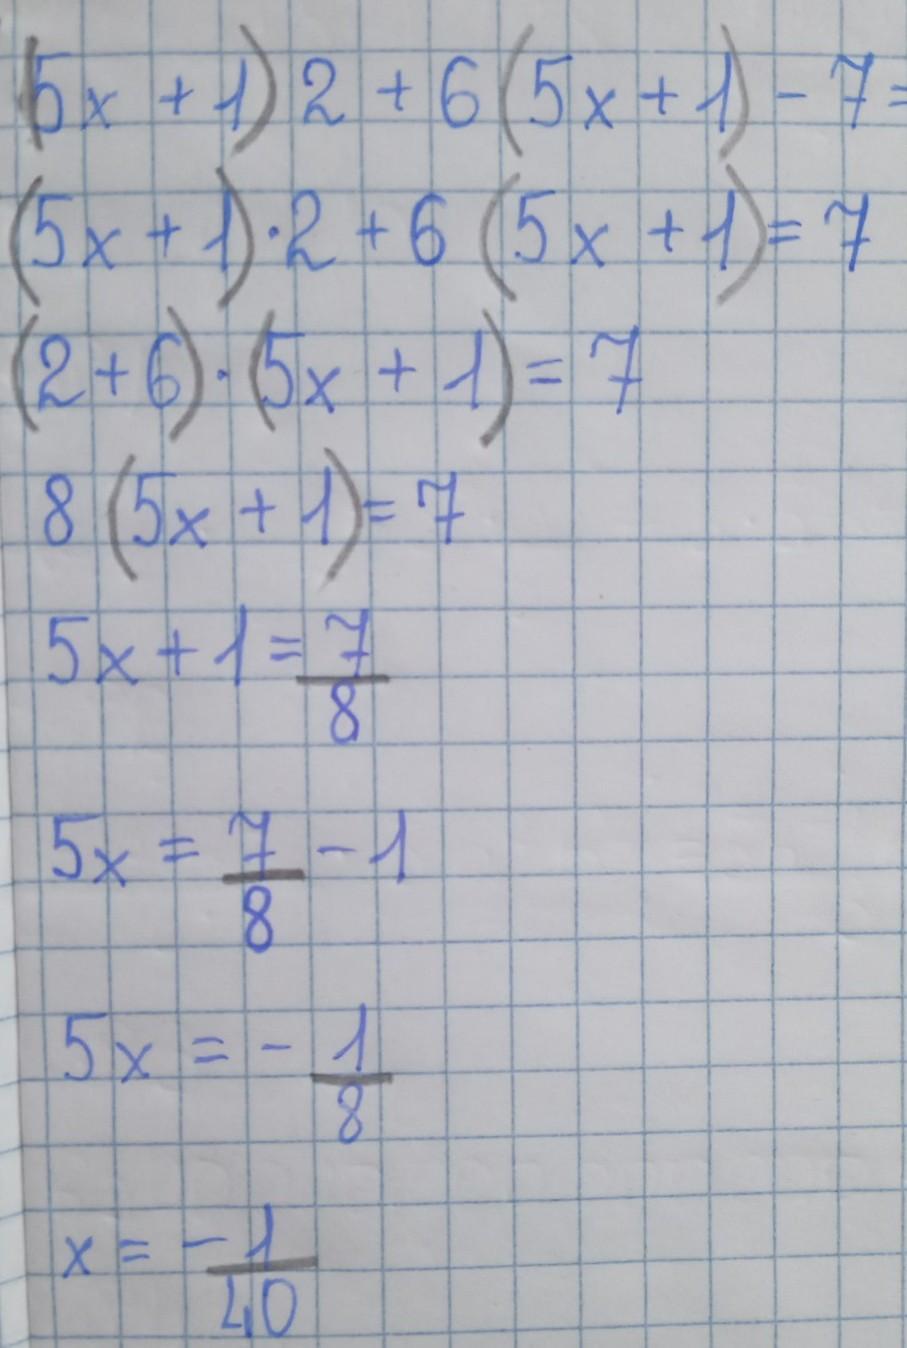 (5x + 1) 2 + 6 (5x + 1) - 7 =
(5x + 1) · 2 + 6 (5x + 1) = 7
(2 + 6) · (5x + 1) = 7
8 (5x + 1) = 7
5x + 1 = 7/8
5x = 7/8 - 1
5x = - 1/8
x = - 1/40